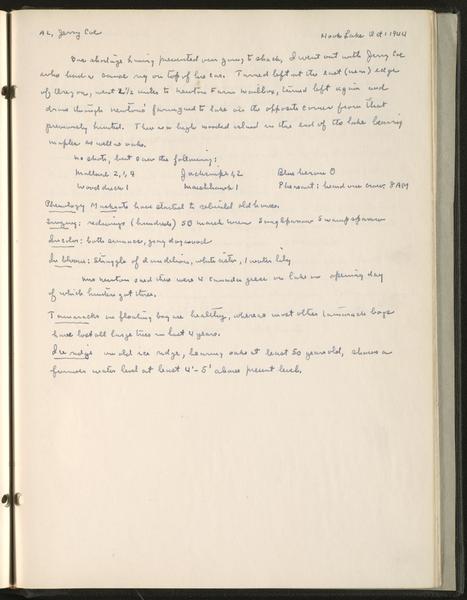 AL, Jerry Coe Hook Lake Oct 1 1944
Gas shortage having prevented our going to shack, I went out with Jerry Coe
who had a canoe rig on top of his car. Turned left at the east (near) edge
of Oregon, went 2 1/2 miles to Newton Farm mailbox, turned left again and
drove through Newton's farmyard to lake at the opposite corner from that
previously hunted. There is a high wooded island in the end of the lake bearing
maples as well as oaks.
No shots, but saw the following:
Mallard 2, 1, 4 Jacksnipe 1, 2 Blue heron 0
Wood duck 1 Marsh hawk 1 Pheasant: heard one crow, 8 AM
Phenology Muskrats have started to rebuild old houses.
Singing: redwings (hundreds) 50 marsh wren 5 song sparrow 5 swamp sparrow
In color: both sumacs, gray dogwood
In bloom: struggle of dandelions, white aster, 1 water lily
Mrs Newton said there were 4 Canada geese on lake on opening day
of which hunters got three.
Tamaracks in floating bog are healthy, whereas most other tamarack bogs
have lost all large trees in last 4 years.
Ice ridge an old ice ridge, bearing oaks at least 50 years old, shows a
former water level at least 4'-5' above present level.